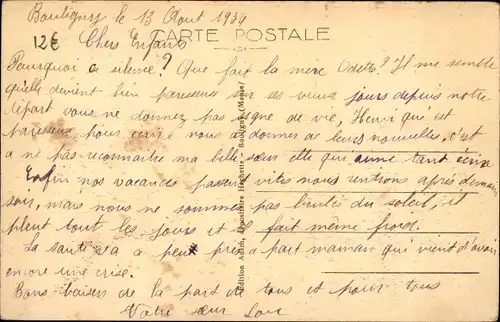 Bouligny le 13 Aout 1934
12€
Chers Enfants
CARTE POSTALE
Pourquoi ce silence? Que fait la mère Odette? Il me semble
qu'elle devient bien paresseuse sur ses vieux jours depuis notre
départ vous ne donnez pas signe de vie, Henri qui est
paresseux pour écrire nous a donner de leurs nouvelles, c'est
a ne pas reconnaitre ma belle sœur elle qui aime tant écrire
Enfin nos vacances passent vites nous rentrons après demain
soir, mais nous ne sommes pas brulés du soleil, il
pleut tout les jours et il fait même froid.
La santé va a peut près a part maman qui vient d'avoir
encore une crise.
Bons baisers de la part de tous et pour tous
Votre sœur
Edition Bouligny (Meuse)